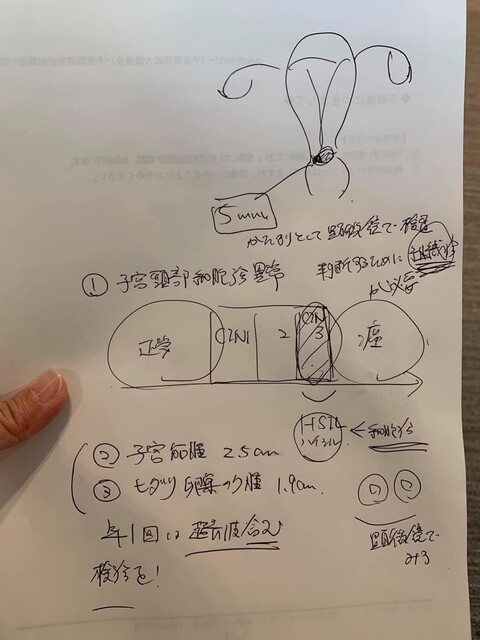 5mm
かたまりとして顕微鏡で検査
判断するために組織診が必要
① 子宮頸部細胞診異常
正常 CIN1 2 CIN3 癌
HSIL ハイシル ← 細胞診
② 子宮筋腫 2.5cm
③ 卵巣のう腫 1.9cm.
年1回は超音波含む
検診を!
顕微鏡で
みる